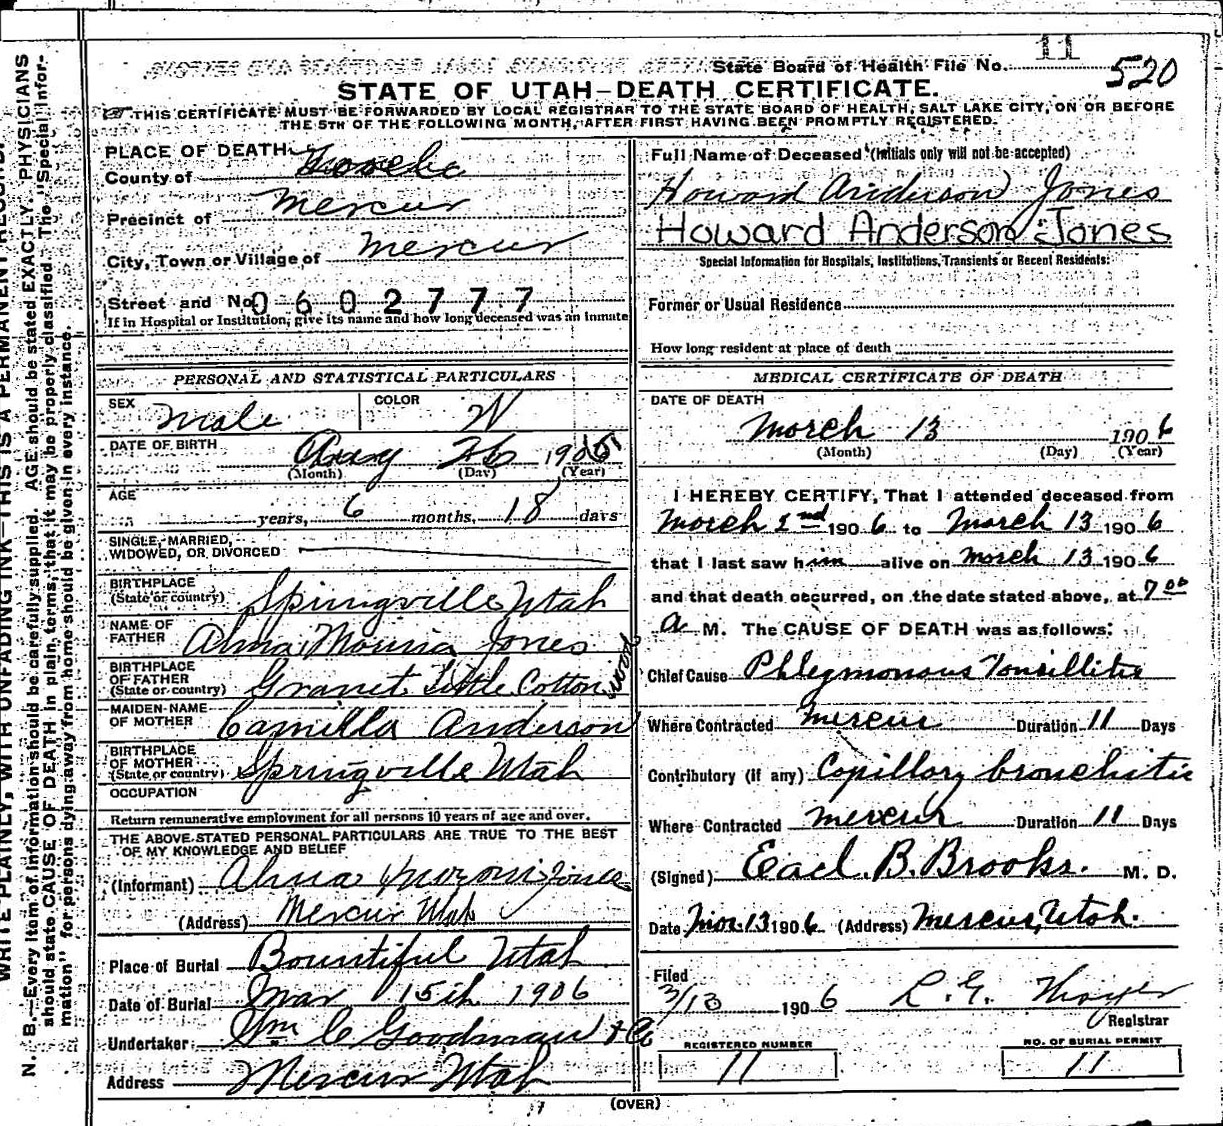 11
State Board of Health File No. 520
STATE OF UTAH—DEATH CERTIFICATE.
THIS CERTIFICATE MUST BE FORWARDED BY LOCAL REGISTRAR TO THE STATE BOARD OF HEALTH, SALT LAKE CITY, ON OR BEFORE
THE 5TH OF THE FOLLOWING MONTH, AFTER FIRST HAVING BEEN PROMPTLY REGISTERED.
WRITE PLAINLY, WITH UNFADING INK—THIS IS A PERMANENT RECORD.
N. B.—Every item of information should be carefully supplied. AGE should be stated EXACTLY. PHYSICIANS
should state CAUSE OF DEATH in plain terms, that it may be properly classified. The "Special Infor-
mation" for persons dying away from home should be given in every instance.
PLACE OF DEATH
County of Tooele
Precinct of Mercur
City, Town or Village of Mercur
Street and No. 0602777
If in Hospital or Institution, give its name and how long deceased was an inmate
PERSONAL AND STATISTICAL PARTICULARS
SEX Male COLOR W
DATE OF BIRTH Aug 26 1905
(Month) (Day) (Year)
AGE
years, 6 months, 18 days
SINGLE, MARRIED,
WIDOWED, OR DIVORCED
BIRTHPLACE
(State or country) Springville Utah
NAME OF
FATHER Alma Jones
BIRTHPLACE
OF FATHER
(State or country) Granet Little Cotton wood
MAIDEN NAME
OF MOTHER Camilla Anderson
BIRTHPLACE
OF MOTHER
(State or country) Springville Utah
OCCUPATION
Return remunerative employment for all persons 10 years of age and over.
THE ABOVE STATED PERSONAL PARTICULARS ARE TRUE TO THE BEST
OF MY KNOWLEDGE AND BELIEF
(Informant) Alma Jones
(Address) Mercur Utah
Place of Burial Bountiful Utah
Date of Burial Mar 15th 1906
Undertaker Wm C Goodman & Co
Address Mercur Utah
Full Name of Deceased (Initials only will not be accepted)
Howard Anderson Jones
Howard Anderson Jones
Special Information for Hospitals, Institutions, Transients or Recent Residents:
Former or Usual Residence
How long resident at place of death
MEDICAL CERTIFICATE OF DEATH
DATE OF DEATH
March 13 1906
(Month) (Day) (Year)
I HEREBY CERTIFY, That I attended deceased from
March 2nd 1906 to March 13 1906
that I last saw him alive on March 13 1906
and that death occurred, on the date stated above, at 7 00
a M. The CAUSE OF DEATH was as follows:
Chief Cause Phlegmonous Tonsillitis
Where Contracted Mercur Duration 11 Days
Contributory (if any) Capillary bronchitis
Where Contracted Mercur Duration 11 Days
(Signed) Earl. B. Brooks. M. D.
Date Mar. 13 1906 (Address) Mercur, Utah.
Filed
3/13 1906 L. G. Thayer
Registrar
REGISTERED NUMBER
11
NO. OF BURIAL PERMIT
11
(OVER)